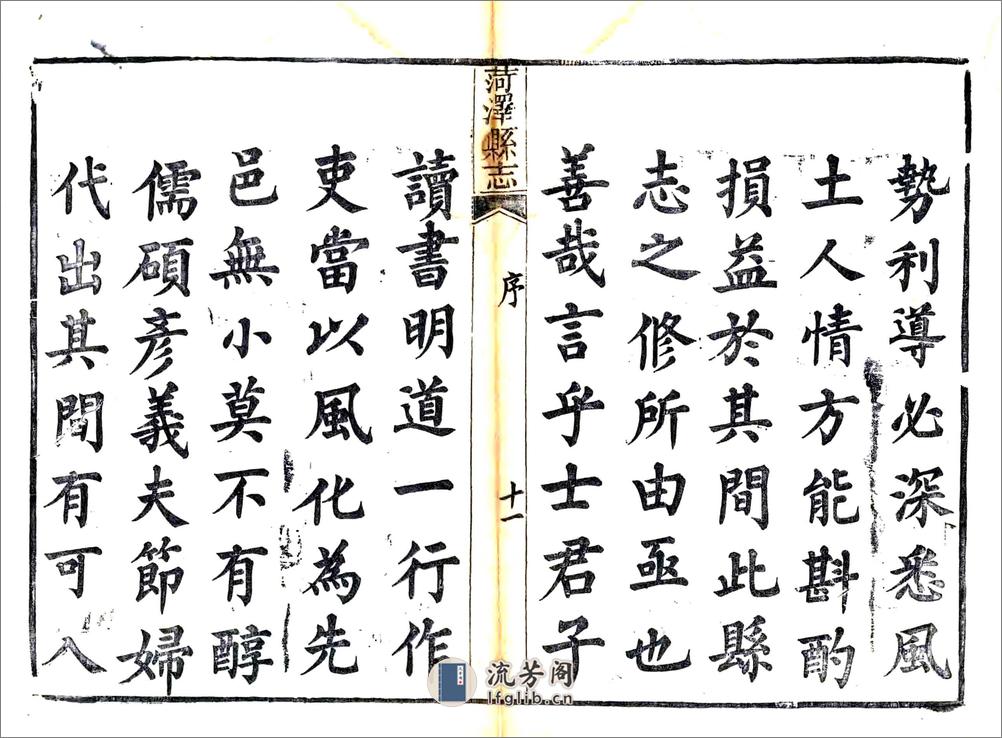 勢利導必深悉風
土人情方能斟酌
損益於其間此縣
志之修所由亟也
善哉言乎士君子
菏澤縣志
序
十一
讀書明道一行作
吏當以風化為先
邑無小莫不有醇
儒碩彥義夫節婦
代出其間有可入
流芳阁
lfglib.cn